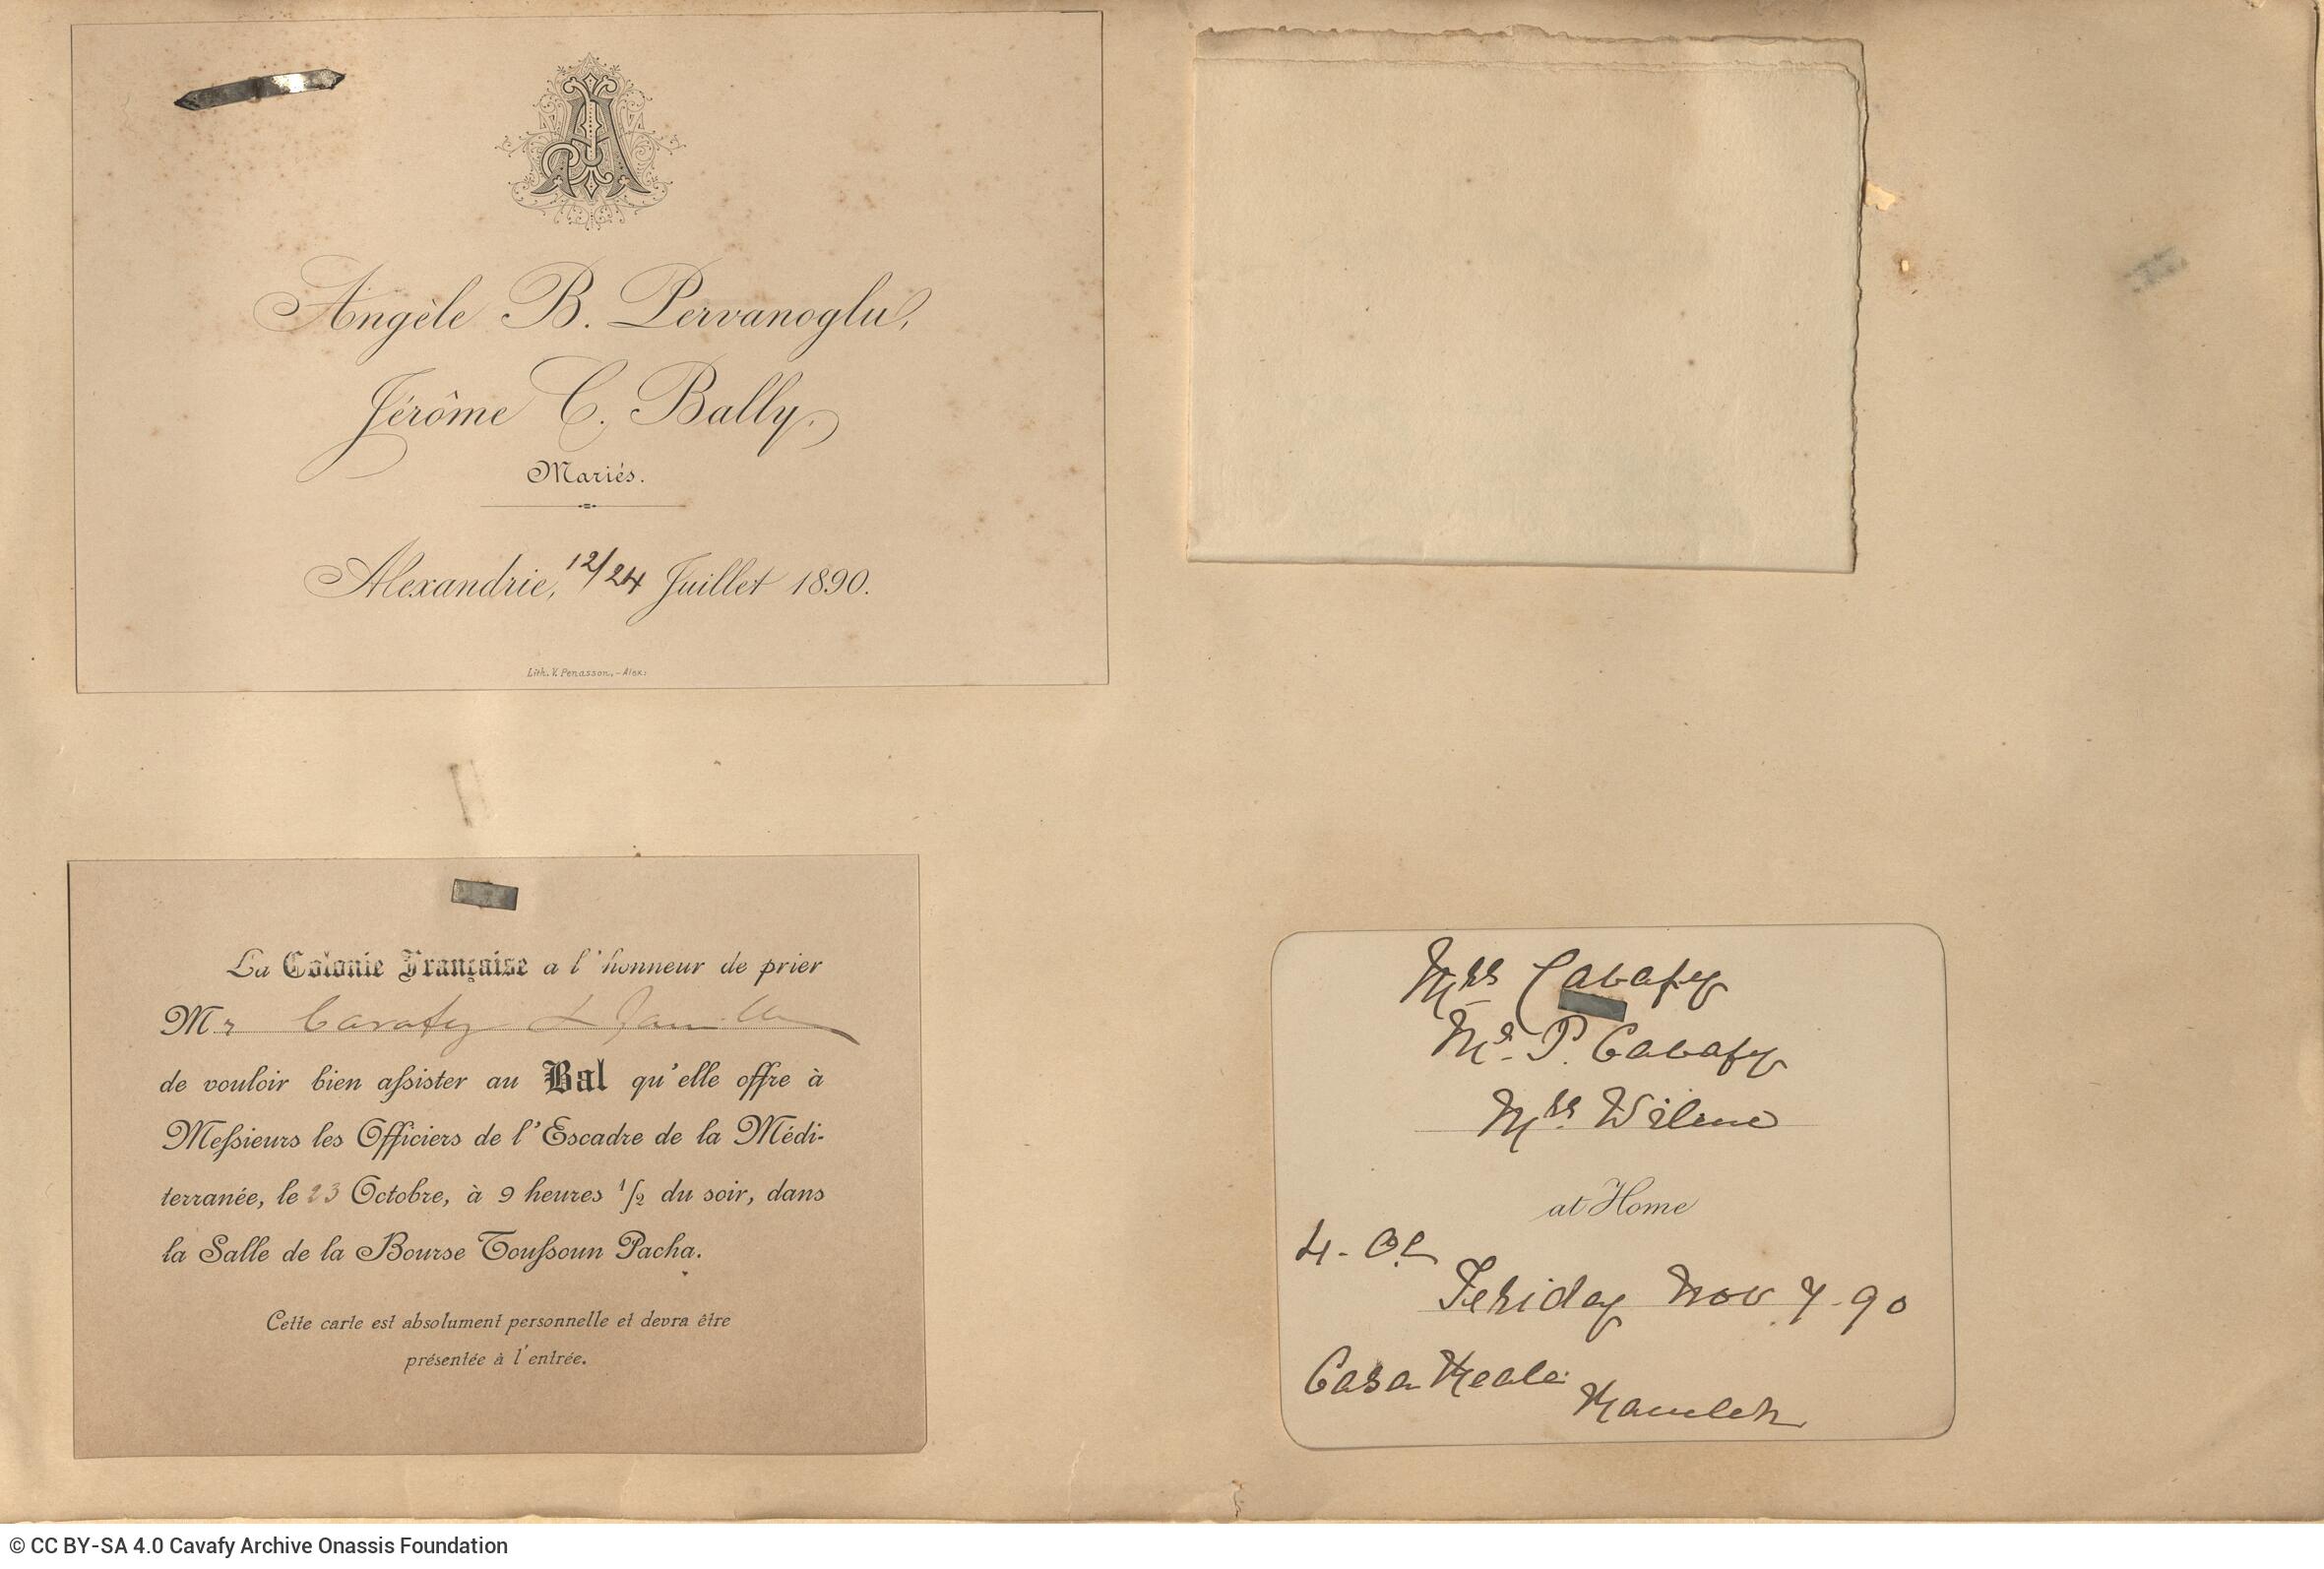 Angèle B. Pervanoglu,
Jérôme C. Bally,
Mariés.
Alexandrie, 12/24 Juillet 1890.
Lith. V. Penasson. - Alex:
La Colonie Française a l'honneur de prier
Mr Cavafy & famille
de vouloir bien assister au Bal qu'elle offre à
Messieurs les Officiers de l'Escadre de la Médi-
terranée, le 23 Octobre, à 9 heures 1/2 du soir, dans
la Salle de la Bourse Toussoun Pacha.
Cette carte est absolument personnelle et devra être
présentée à l'entrée.
Mrs Cavafy
Mr. P. Cavafy
Mrs.
at Home
4 -
Friday Nov 7-90
Casa
Ramleh
© CC BY-SA 4.0 Cavafy Archive Onassis Foundation